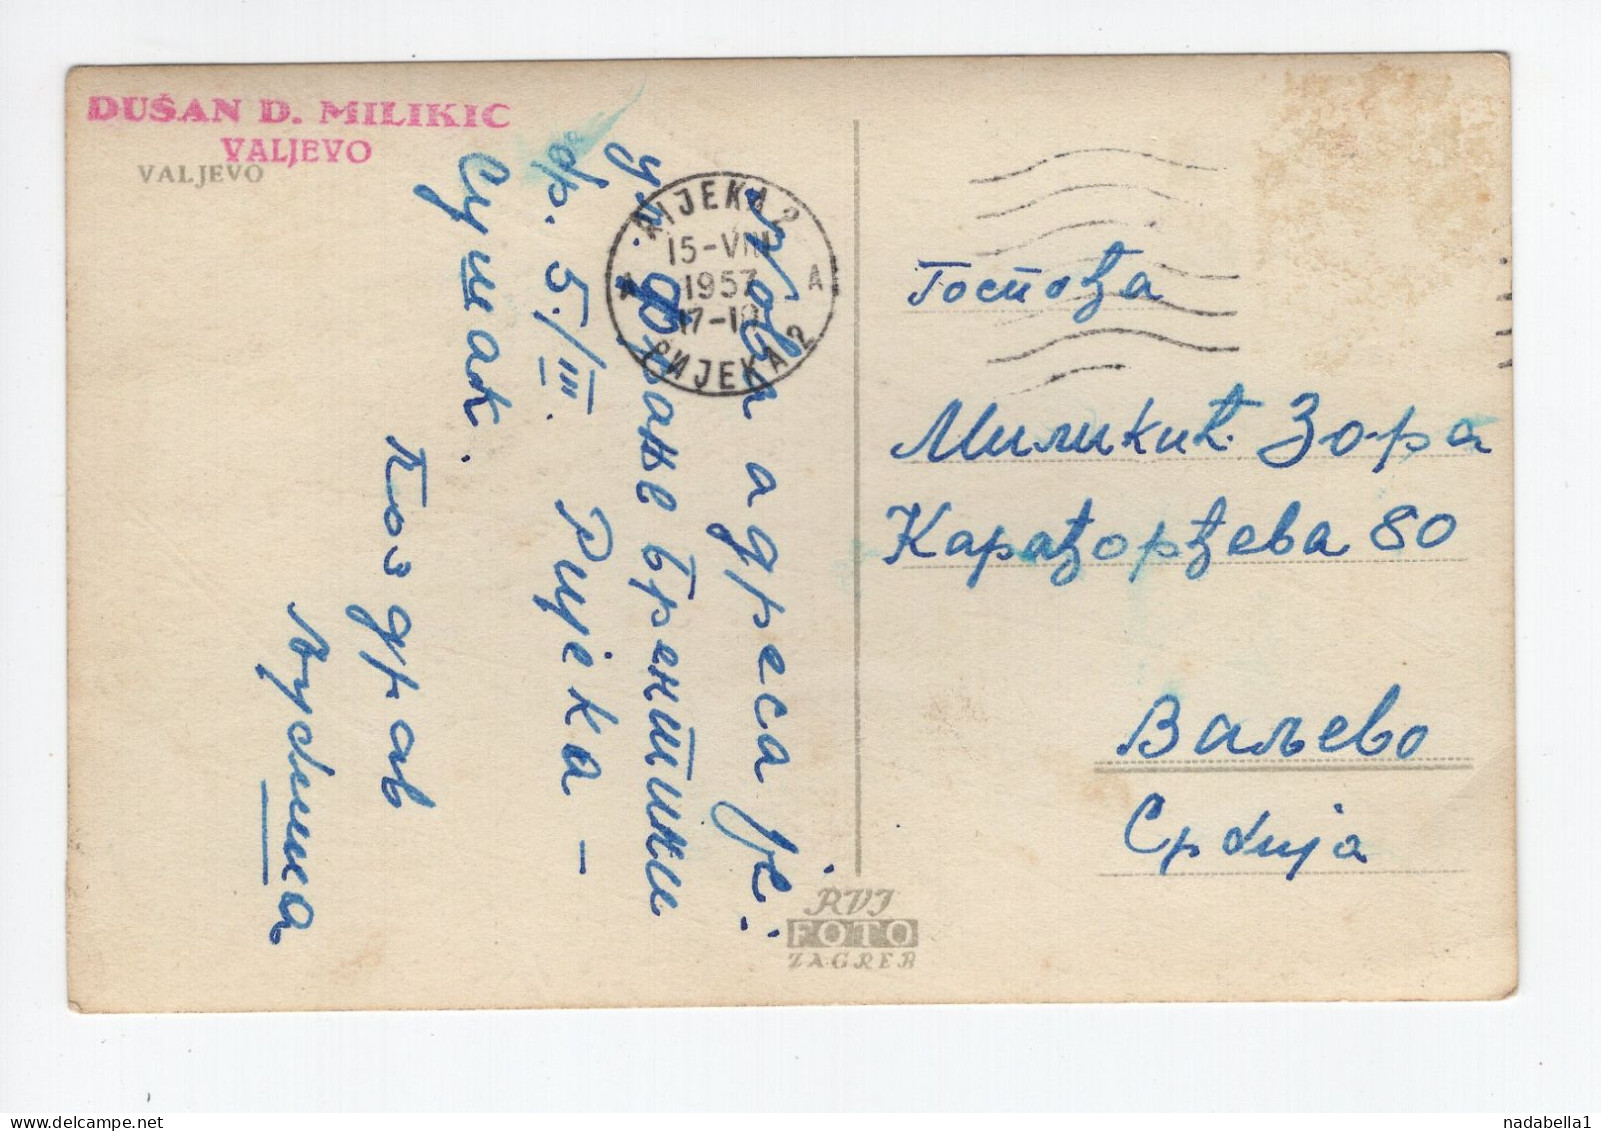 DUŠAN D. MILIKIC
VALJEVO
VALJEVO
Нова адреса је:
ул. Фрање Брентини
бр. 5./III. Ријека –
Сушак.
Поздрав
RIJEKA 2
15-VIII
1957
17-18
A A
РИЈЕКА 2
Госпођа
Миликић Зора
Карађорђева 80
Ваљево
Србија
RVI
FOTO
ZAGREB
nadabella1